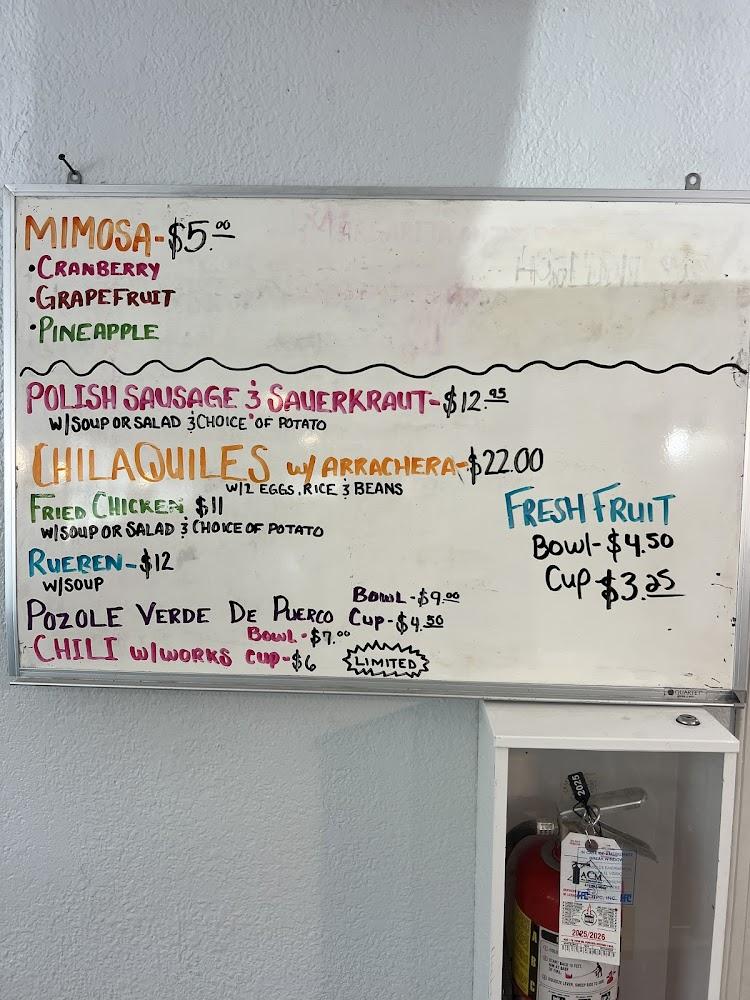 MIMOSA-$5.00
•CRANBERRY
•GRAPEFRUIT
•PINEAPPLE
POLISH SAUSAGE & SAUERKRAUT-$12.95
W/SOUP OR SALAD & CHOICE OF POTATO
CHILAQUILES W/ ARRACHERA-$22.00
W/2 EGGS, RICE & BEANS
FRIED CHICKEN $11
W/SOUP OR SALAD & CHOICE OF POTATO
RUEBEN-$12
W/SOUP
POZOLE VERDE DE PUERCO BOWL-$9.00
CUP-$4.50
CHILI W/WORKS BOWL-$7.00
CUP-$6
LIMITED
FRESH FRUIT
BOWL-$4.50
CUP $3.25
QUARTET
2025
ACM
INC.
2025/2026
A
B
C